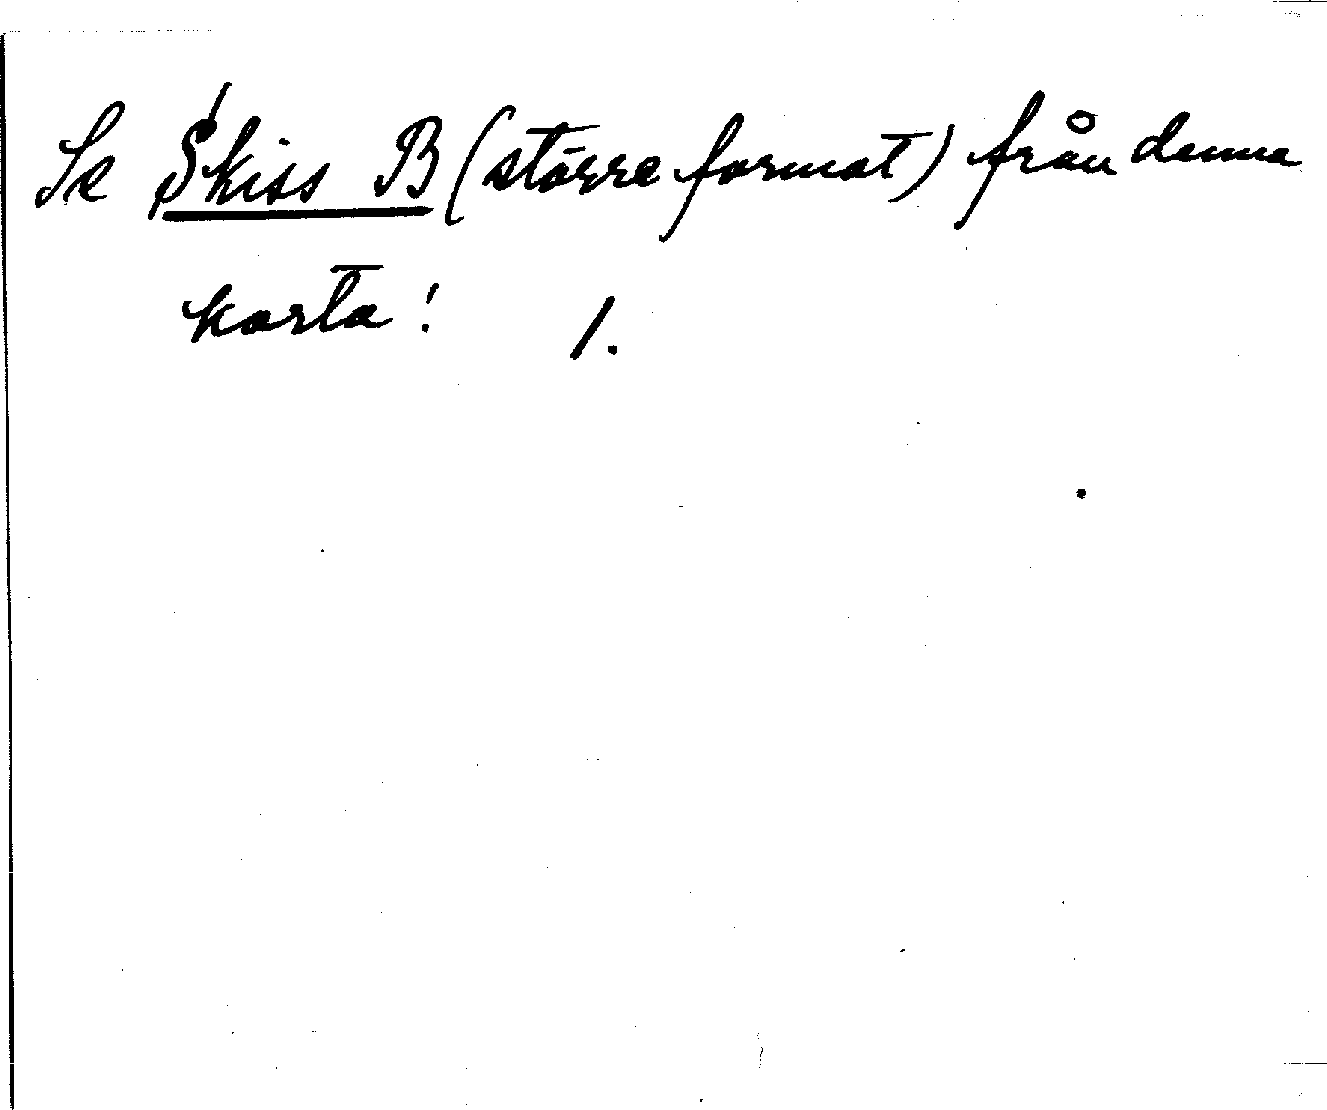 Se Skiss B (större format) från denna
karta! 1.